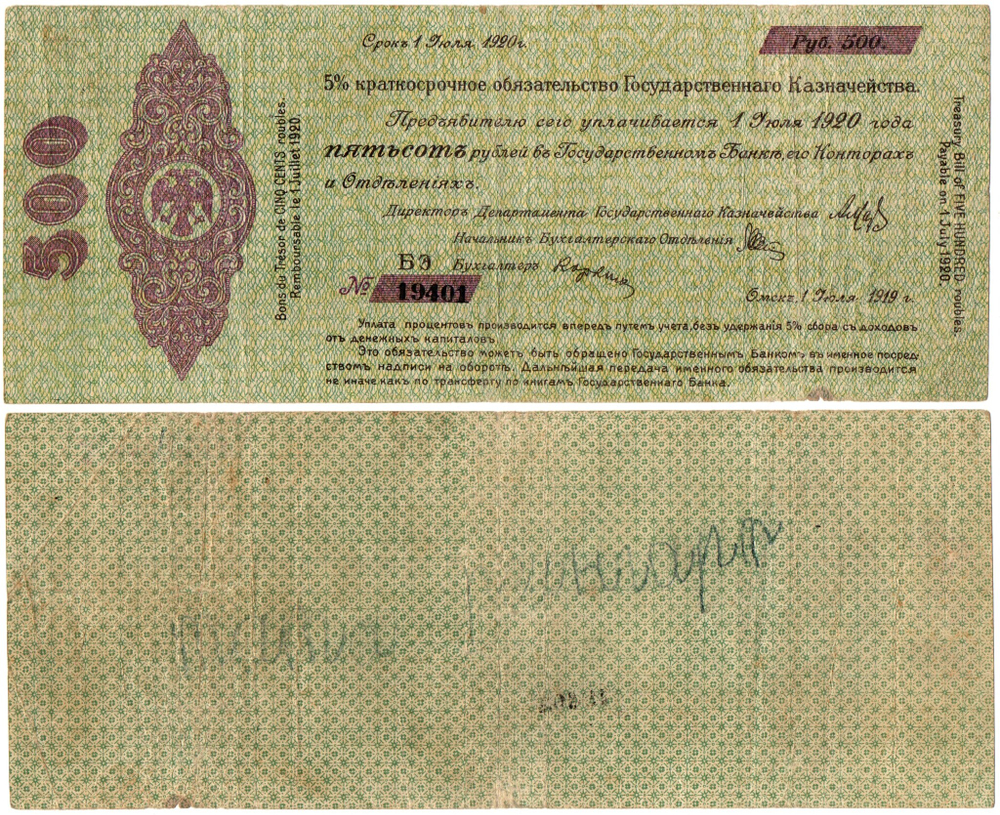 500
Bons du Trésor de CINQ CENTS roubles.
Remboursable le 1 Juillet 1920
Срокъ 1 Іюля 1920 г.
Руб. 500.
5% краткосрочное обязательство Государственнаго Казначейства.
Предъявителю сего уплачивается 1 Іюля 1920 года
пятьсотъ рублей въ Государственномъ Банкѣ, его Конторахъ
и Отдѣленіяхъ.
Директоръ Департамента Государственнаго Казначейства
Начальникъ Бухгалтерскаго Отдѣленія
БЭ Бухгалтеръ
№ 19401
Омскъ, 1 Іюля 1919 г.
Уплата процентовъ производится впередъ путемъ учета, безъ удержанія 5% сбора съ доходовъ
отъ денежныхъ капиталовъ.
Это обязательство можетъ быть обращено Государственнымъ Банкомъ въ именное посред-
ствомъ надписи на оборотѣ. Дальнѣйшая передача именного обязательства производится
не иначе, какъ по трансферту по книгамъ Государственнаго Банка.
Treasury Bill of FIVE HUNDRED roubles.
Payable on 1 July 1920.